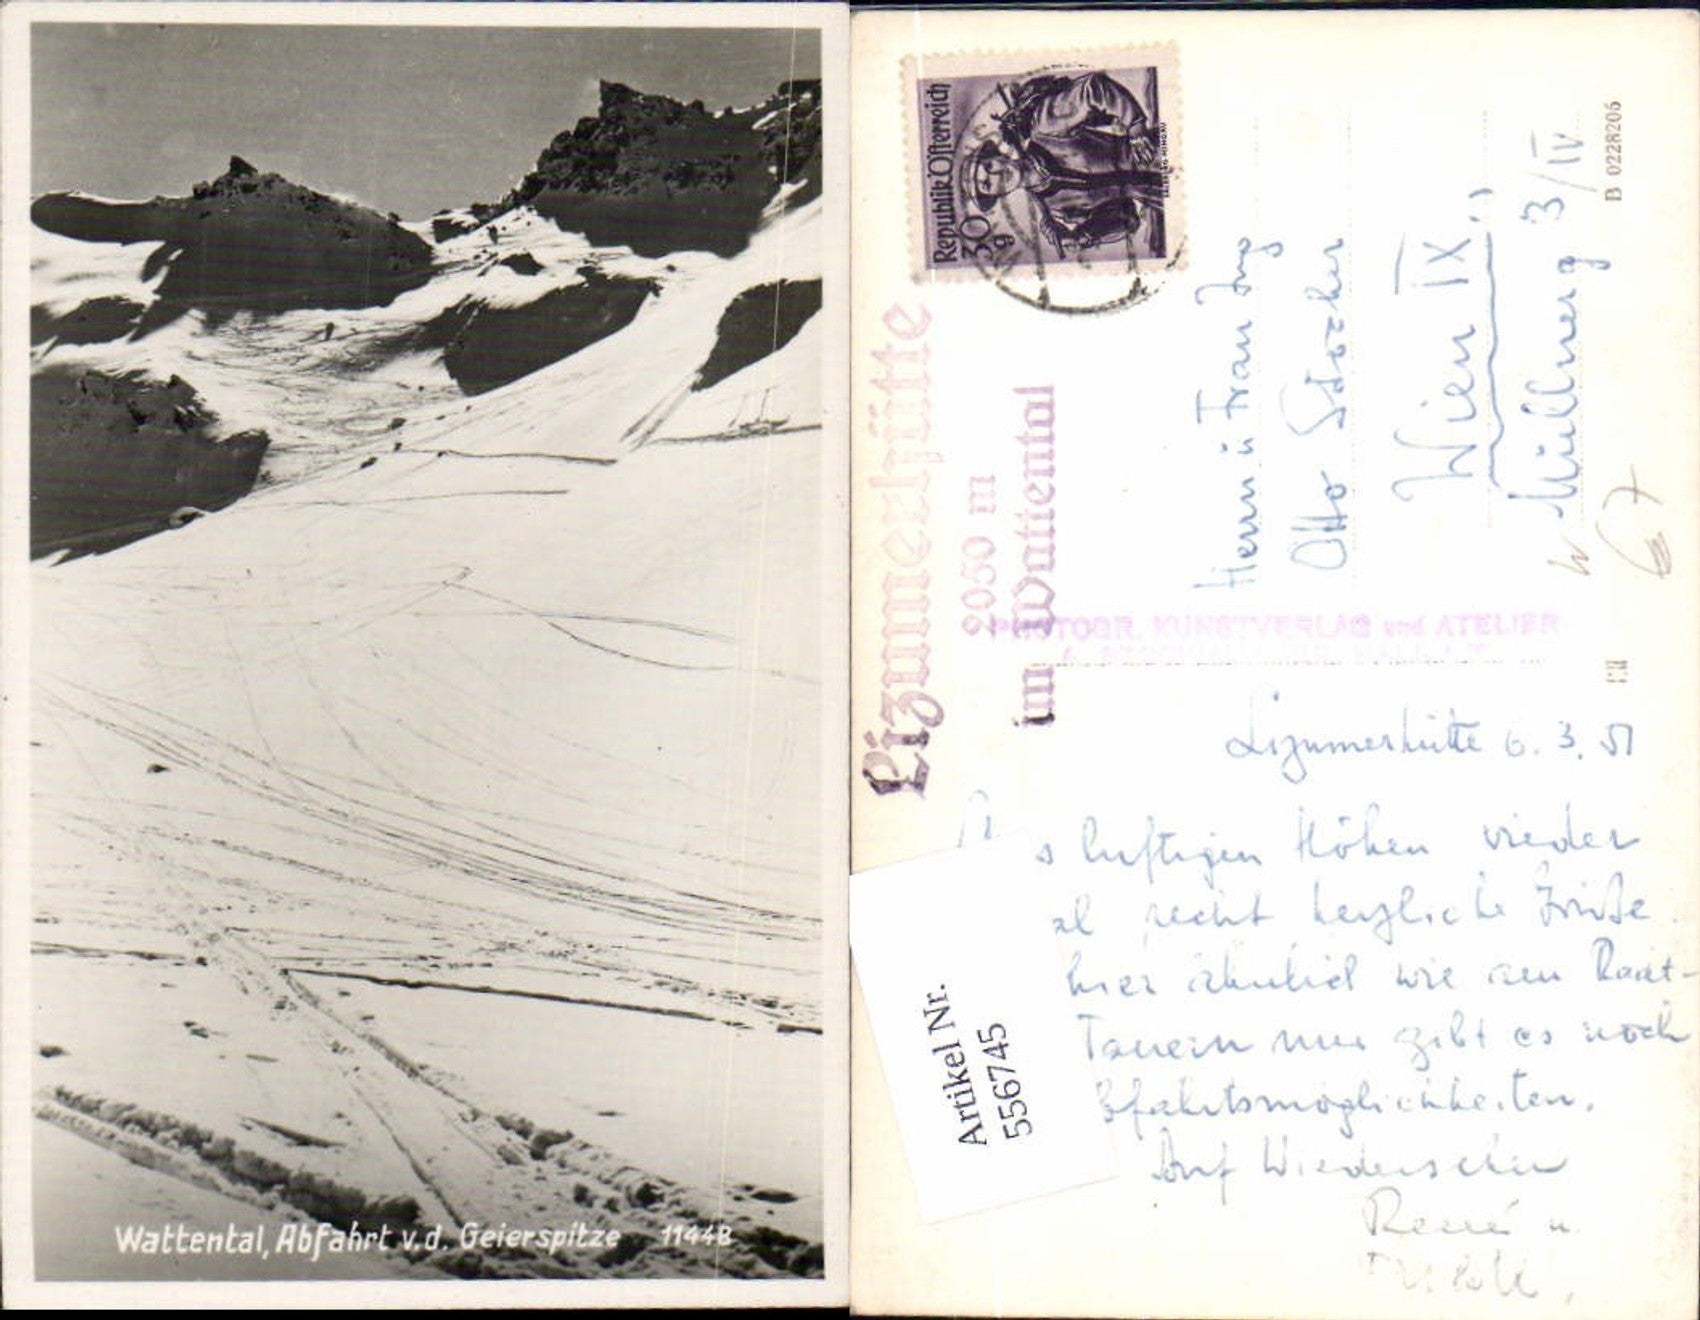 Wattental, Abfahrt v.d. Geierspitze 11448
Republik Österreich
30
g
Lizumerhütte
2050 m
im Wattental
Herrn u Frau Ing
Otto Stocker
Wien IX
Müllnerg 3/IV
67
B 0228206
PHOTOGR. KUNSTVERLAG und ATELIER
Lizumerhütte 6. 3. 51
s luftigen Höhen wieder
al recht herzliche Grüße.
hier ähnlich wie am
Tauern nur gibt es noch
bfahrtsmöglichkeiten.
Auf Wiedersehen
René u.
Artikel Nr.
556745